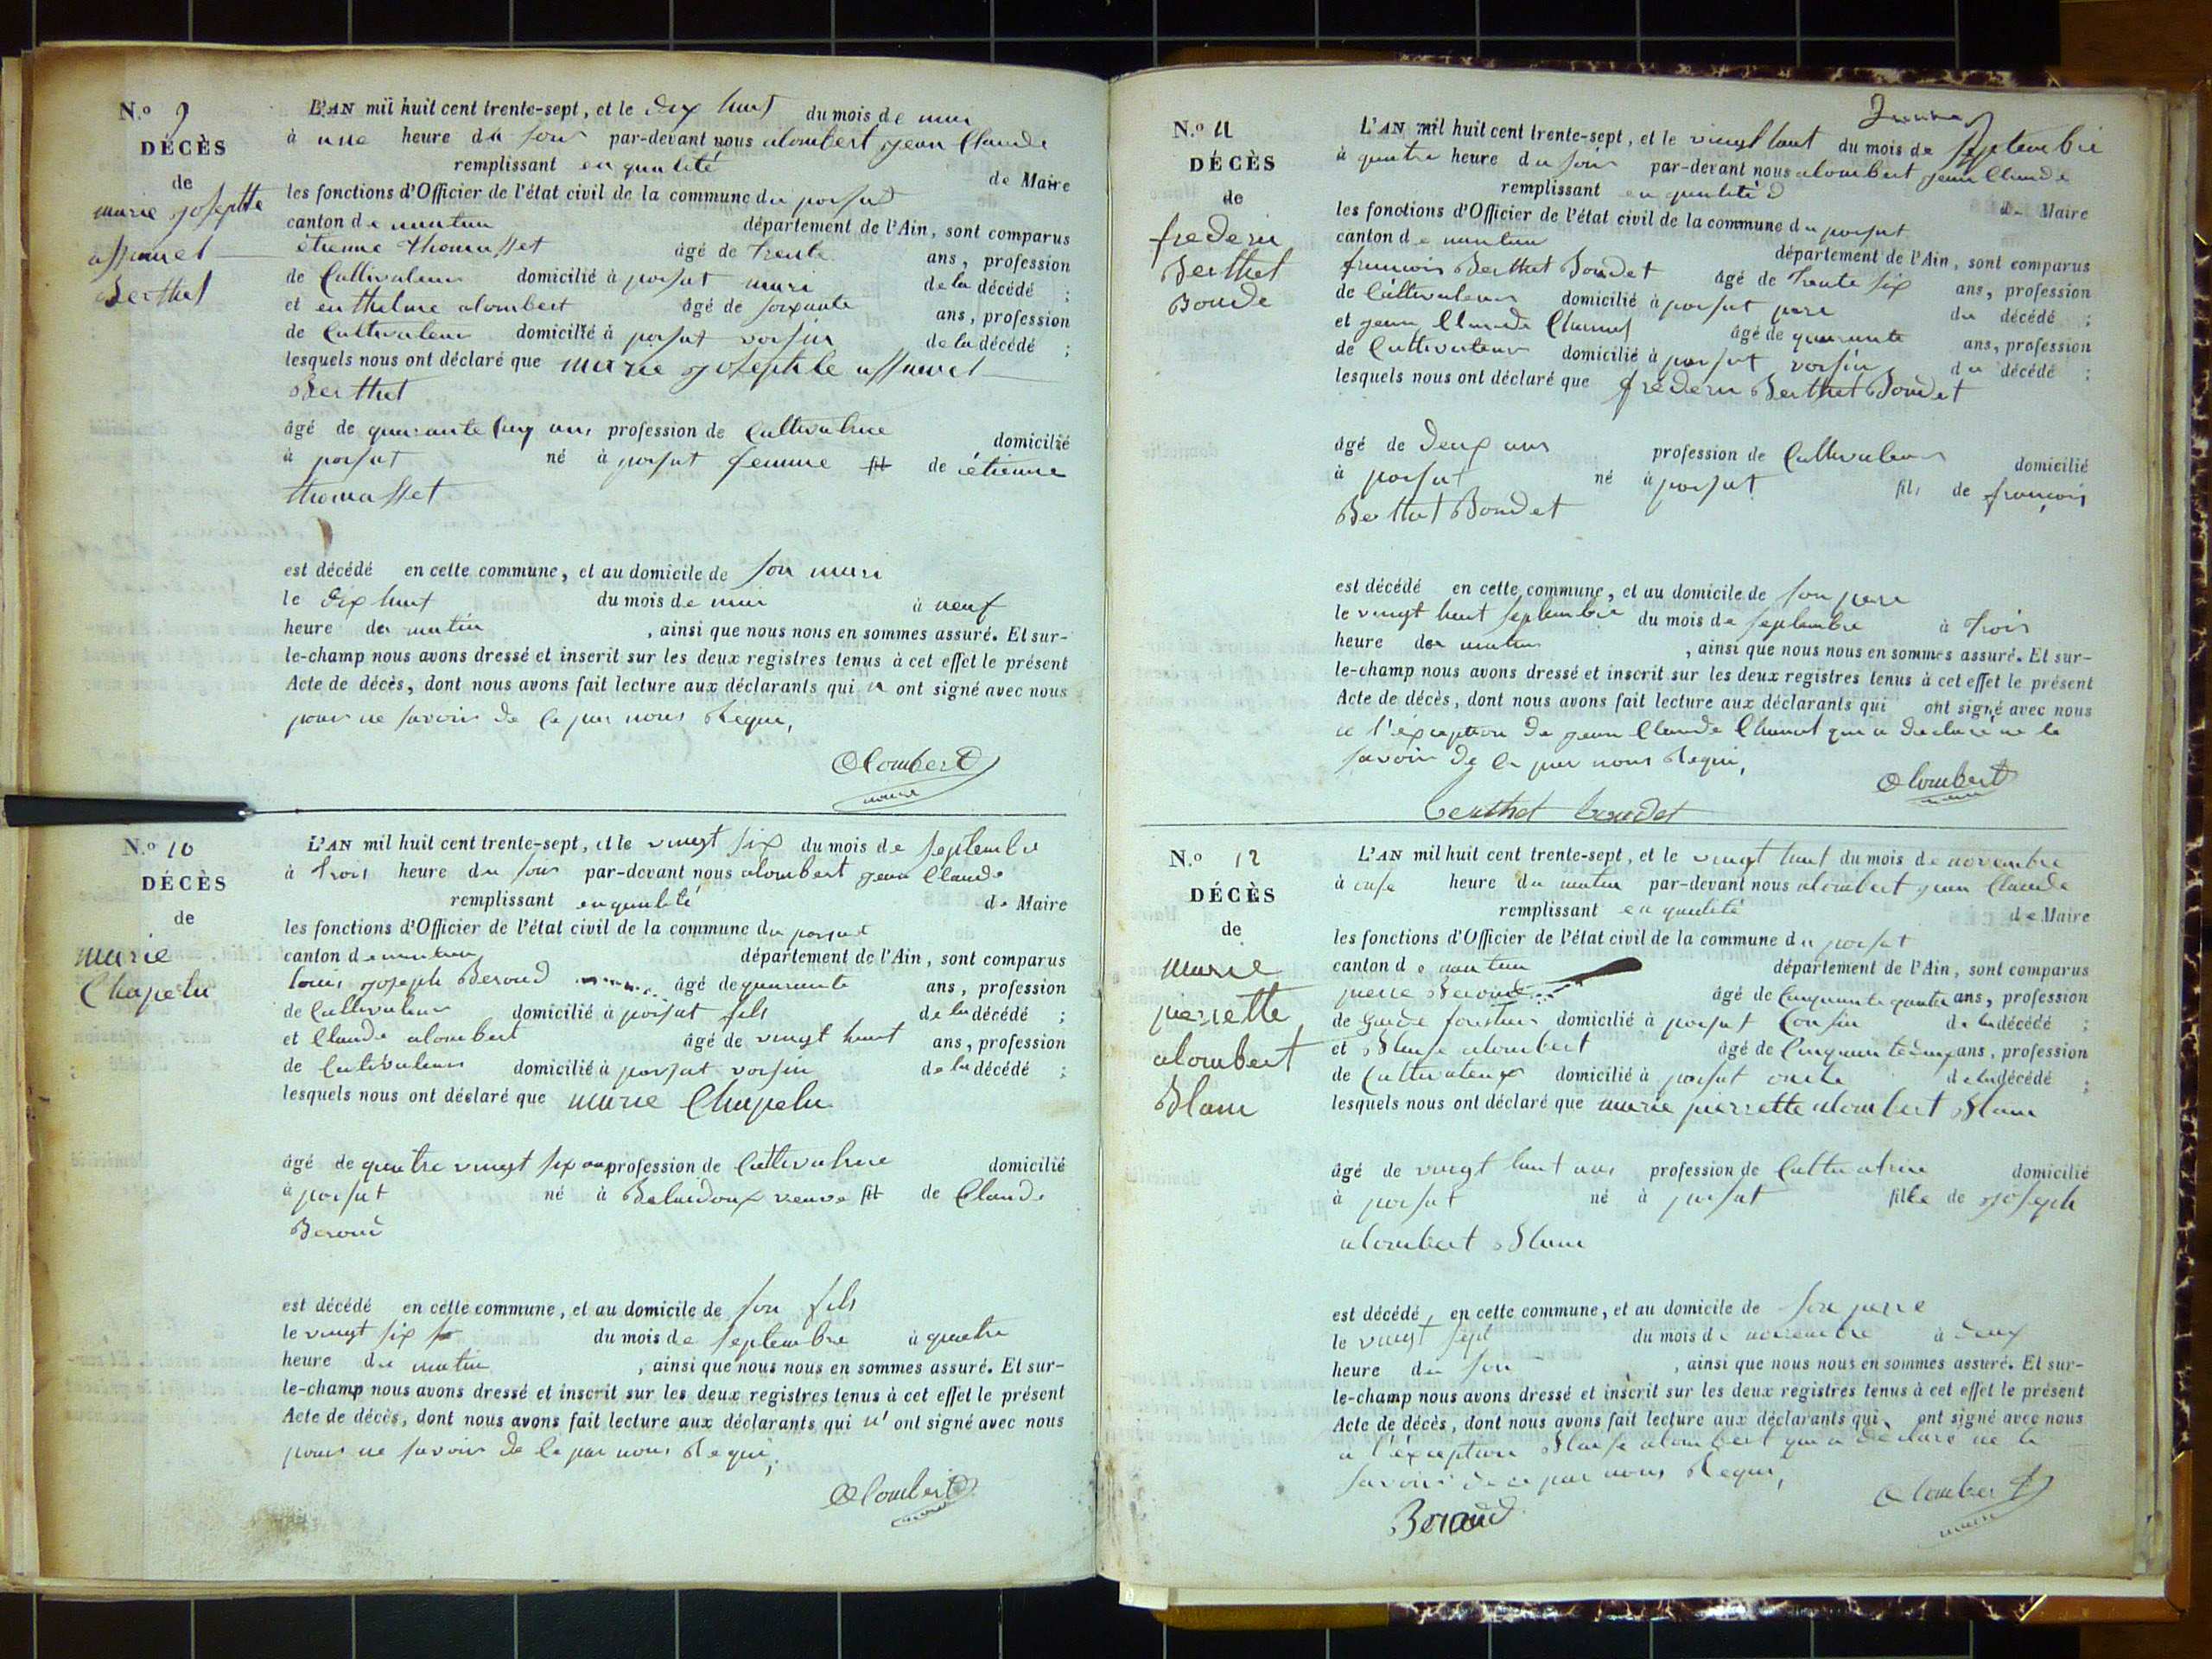 N.o 9
DÉCÈS
de
marie josephte
assumel
Berthet
L'AN mil huit cent trente-sept, et le dix huit du mois de mai
à une heure du soir par-devant nous alombert jean Claude
remplissant en qualité de Maire
les fonctions d'Officier de l'état civil de la commune du poisat
canton de nantua département de l'Ain, sont comparus
étienne thomasset âgé de trente ans, profession
de Cultivateur domicilié à poisat mari de la décédé ;
et enthelme alombert âgé de soixante ans, profession
de Cultivateur domicilié à poisat voisin de la décédé ;
lesquels nous ont déclaré que marie josephte assumel
Berthet
âgé de quarante cinq ans profession de Cultivatrice domicilié
à poisat né à poisat femme fil de étienne
thomasset
est décédé en cette commune, et au domicile de son mari
le dix huit du mois de mai à neuf
heure du matin , ainsi que nous nous en sommes assuré. Et sur-
le-champ nous avons dressé et inscrit sur les deux registres tenus à cet effet le présent
Acte de décès, dont nous avons fait lecture aux déclarants qui n ont signé avec nous
pour ne savoir de ce par nous Requi,
Alombert
maire
N.o 10
DÉCÈS
de
marie
Chapelu
L'AN mil huit cent trente-sept, et le vingt six du mois de septembre
à trois heure du soir par-devant nous alombert jean Claude
remplissant en qualité de Maire
les fonctions d'Officier de l'état civil de la commune du poisat
canton de nantua département de l'Ain, sont comparus
louis joseph Beroud âgé de quarante ans, profession
de Cultivateur domicilié à poisat fils de la décédé ;
et Claude alombert âgé de vingt huit ans, profession
de Cultivateur domicilié à poisat voisin de la décédé ;
lesquels nous ont déclaré que marie Chapelu
âgé de quatre vingt six ans profession de Cultivatrice domicilié
à poisat né à Belaidoux veuve fil de Claude
Beroud
est décédé en cette commune, et au domicile de son fils
le vingt six du mois de septembre à quatre
heure du matin , ainsi que nous nous en sommes assuré. Et sur-
le-champ nous avons dressé et inscrit sur les deux registres tenus à cet effet le présent
Acte de décès, dont nous avons fait lecture aux déclarants qui n' ont signé avec nous
pour ne savoir de ce par nous Requi,
Alombert
maire
N.o 11
DÉCÈS
de
frederic
Berthet
Boude
L'AN mil huit cent trente-sept, et le vingt huit du mois de septembre
à quatre heure du soir par-devant nous alombert jean Claude
remplissant en qualité d de Maire
les fonctions d'Officier de l'état civil de la commune du poisat
canton de nantua département de l'Ain, sont comparus
francois Berthet Boudet âgé de trente six ans, profession
de Cultivateur domicilié à poisat pere du décédé ;
et jean Claude Chanut âgé de quarante ans, profession
de Cultivateur domicilié à poisat voisin du décédé ;
lesquels nous ont déclaré que fréderic Berthet Boudet
âgé de deux ans profession de Cultivateur domicilié
à poisat né à poisat fils de françois
Berthet Boudet
est décédé en cette commune, et au domicile de son pere
le vingt huit septembre du mois de septembre à trois
heure du matin , ainsi que nous nous en sommes assuré. Et sur-
le-champ nous avons dressé et inscrit sur les deux registres tenus à cet effet le présent
Acte de décès, dont nous avons fait lecture aux déclarants qui ont signé avec nous
a l'éxception de jean Claude Chanut qui a declaré ne le
savoir de ce par nous Requi,
Alombert
maire
berthet boudet
N.o 12
DÉCÈS
de
marie
pierrette
alombert
Blam
L'AN mil huit cent trente-sept, et le vingt huit du mois de novembre
à onse heure du matin par-devant nous alombert jean Claude
remplissant en qualité de Maire
les fonctions d'Officier de l'état civil de la commune du poisat
canton de nantua département de l'Ain, sont comparus
pierre Beroud âgé de Cinquante quatre ans, profession
de Garde forestier domicilié à poisat Cousin de la décédé ;
et Blaise alombert âgé de Cinquante cinq ans, profession
de Cultivateur domicilié à poisat oncle de la décédé ;
lesquels nous ont déclaré que marie pierrette alombert Blam
âgé de vingt huit ans profession de Cultivatrice domicilié
à poisat né à poisat fille de joseph
alombert Blam
est décédé en cette commune, et au domicile de son pere
le vingt sept du mois de novembre à deux
heure du soir , ainsi que nous nous en sommes assuré. Et sur-
le-champ nous avons dressé et inscrit sur les deux registres tenus à cet effet le présent
Acte de décès, dont nous avons fait lecture aux déclarants qui ont signé avec nous
a l'éxception Blaise alombert qui a declaré ne le
savoir de ce par nous Requi,
Alombert
maire
Beroud